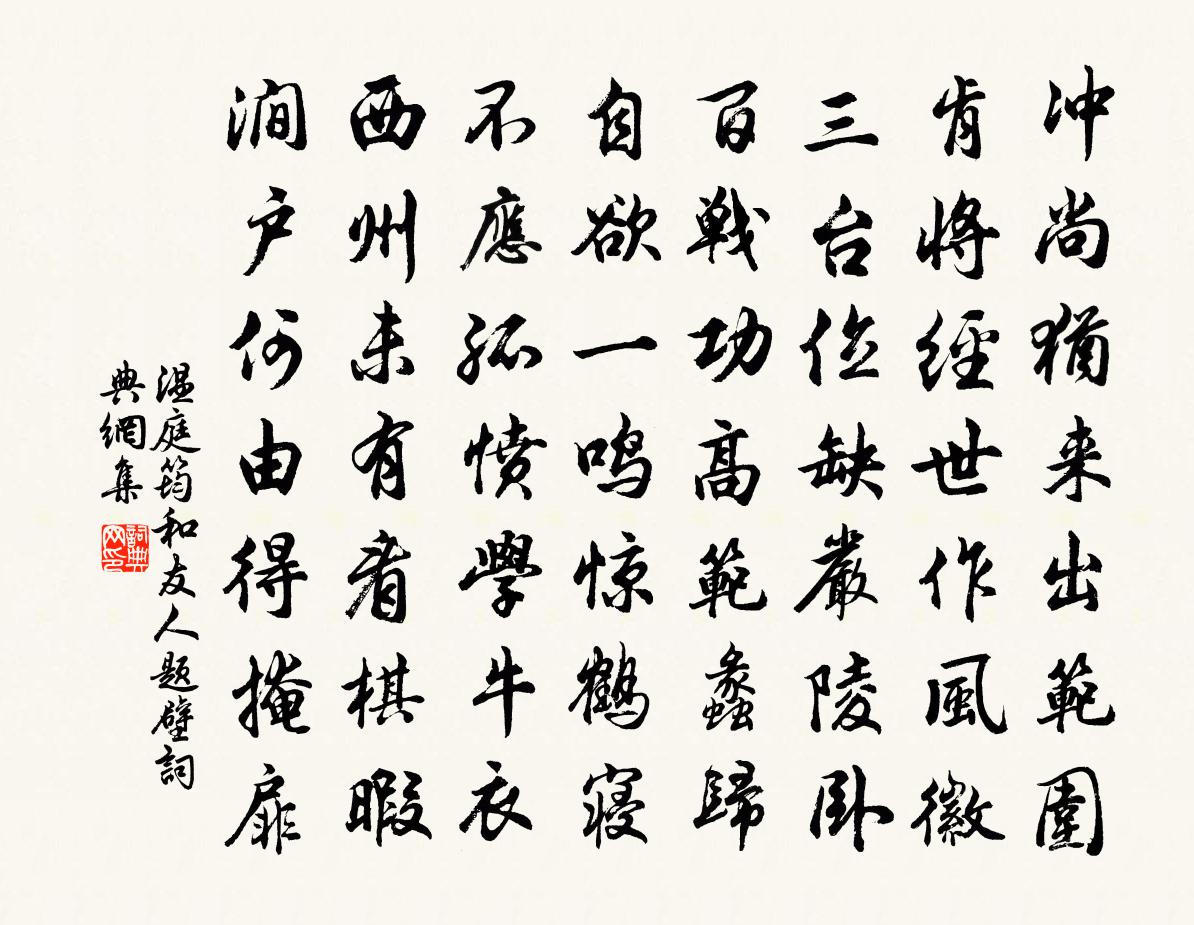 冲尚猶来出範圍
肯將經世作風徽
三台位缺嚴陵卧
百戰功高範蠡歸
自欲一鳴惊鶴寢
不應孤憤學牛衣
西州未有看棋暇
澗户何由得掩扉
温庭筠和友人题壁詞
典網集
詞典网印